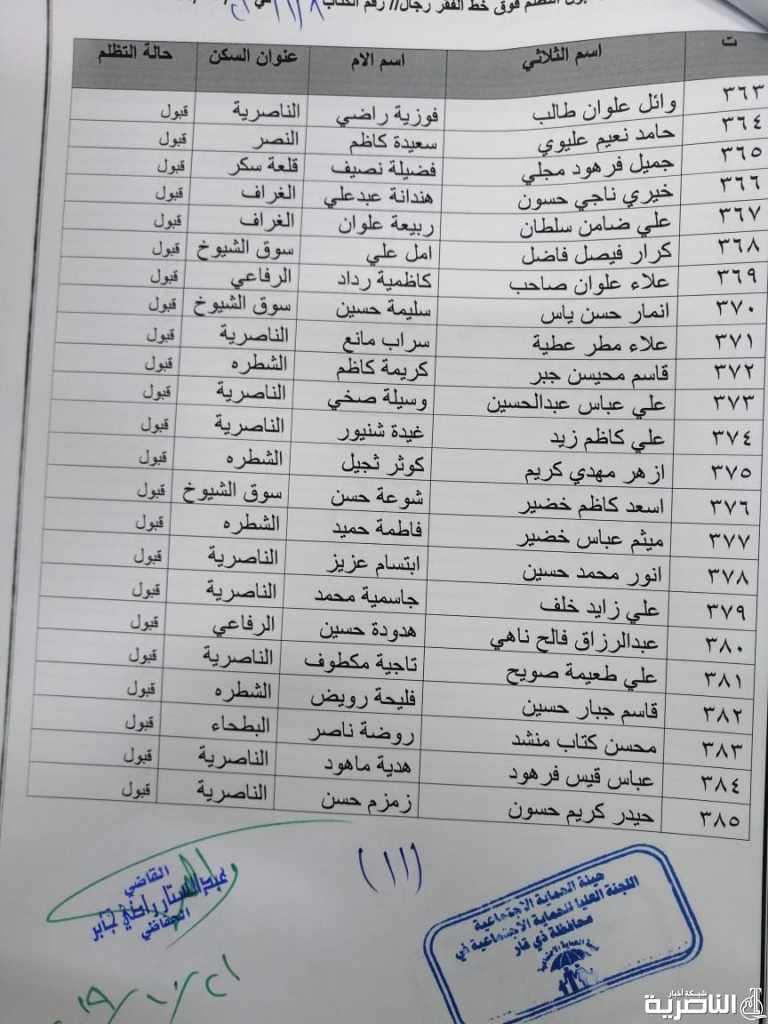 قبول التظلم فوق خط الفقر رجال// رقم الكتاب ١١١٨ في
ت اسم الثلاثي اسم الام عنوان السكن حالة التظلم
٣٦٣ وائل علوان طالب فوزية راضي الناصرية قبول
٣٦٤ حامد نعيم عليوي سعيدة كاظم النصر قبول
٣٦٥ جميل فرهود مجلي فضيلة نصيف قلعة سكر قبول
٣٦٦ خيري ناجي حسون هندانة عبدعلي الغراف قبول
٣٦٧ علي ضامن سلطان ربيعة علوان الغراف قبول
٣٦٨ كرار فيصل فاضل امل علي سوق الشيوخ قبول
٣٦٩ علاء علوان صاحب كاظمية رداد الرفاعي قبول
٣٧٠ انمار حسن ياس سليمة حسين سوق الشيوخ قبول
٣٧١ علاء مطر عطية سراب مانع الناصرية قبول
٣٧٢ قاسم محيسن جبر كريمة كاظم الشطره قبول
٣٧٣ علي عباس عبدالحسين وسيلة صخي الناصرية قبول
٣٧٤ علي كاظم زيد غيدة شنيور الناصرية قبول
٣٧٥ ازهر مهدي كريم كوثر ثجيل الشطره قبول
٣٧٦ اسعد كاظم خضير شوعة حسن سوق الشيوخ قبول
٣٧٧ ميثم عباس خضير فاطمة حميد الشطره قبول
٣٧٨ انور محمد حسين ابتسام عزيز الناصرية قبول
٣٧٩ علي زايد خلف جاسمية محمد الناصرية قبول
٣٨٠ عبدالرزاق فالح ناهي هدودة حسين الرفاعي قبول
٣٨١ علي طعيمة صويح تاجية مكطوف الناصرية قبول
٣٨٢ قاسم جبار حسين فليحة رويض الشطره قبول
٣٨٣ محسن كتاب منشد روضة ناصر البطحاء قبول
٣٨٤ عباس قيس فرهود هدية ماهود الناصرية قبول
٣٨٥ حيدر كريم حسون زمزم حسن الناصرية قبول
(١١)
القاضي
عبدالستار راضي جابر
القاضي
هيئة الحماية الاجتماعية
اللجنة العليا للحماية الاجتماعية في
محافظة ذي قار
شبكة أخبار
الناصرية